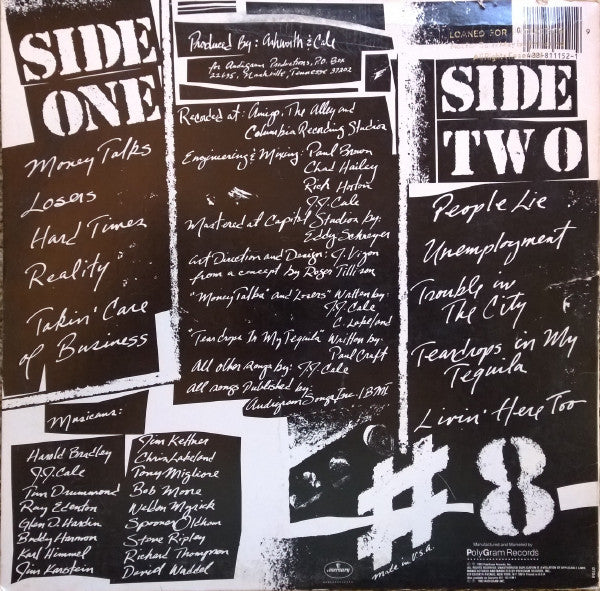 SIDE
ONE
Money Talks
Losers
Hard Times
Reality
Takin' Care
of Business
Produced By: Ashworth & Cale
for Audigram Productions, P.O. Box
22635, Nashville, Tennessee 37202
Recorded at: Amigo, The Alley and
Columbia Recording Studios
Engineering & Mixing: Paul Brown
Chad Hailey
Rick Horton
J.J. Cale
Mastered at Capitol Studios by:
Eddy Schreyer
Art Direction and Design: J. Vizon
from a concept by Roger Tillison
"Money Talks" and "Losers" Written by:
J.J. Cale
C. Lakeland
"Teardrops In My Tequila" Written by:
Paul Craft
All other songs by: J.J. Cale
All songs Published by:
Audigram Songs Inc. (BMI)
LOANED FOR
811152-1
9
SIDE
TWO
People Lie
Unemployment
Trouble in
The City
Teardrops in My
Tequila
Livin' Here Too
Musicians:
Harold Bradley
J.J. Cale
Tim Drummond
Ray Edenton
Glen D. Hardin
Buddy Harmon
Karl Himmel
Jim Karstein
Jim Keltner
Chris Lakeland
Tony Migliore
Bob Moore
Weldon Myrick
Spooner Oldham
Steve Ripley
Richard Thompson
David Waddel
#8
mercury
made in U.S.A.
Manufactured and Marketed by
PolyGram Records